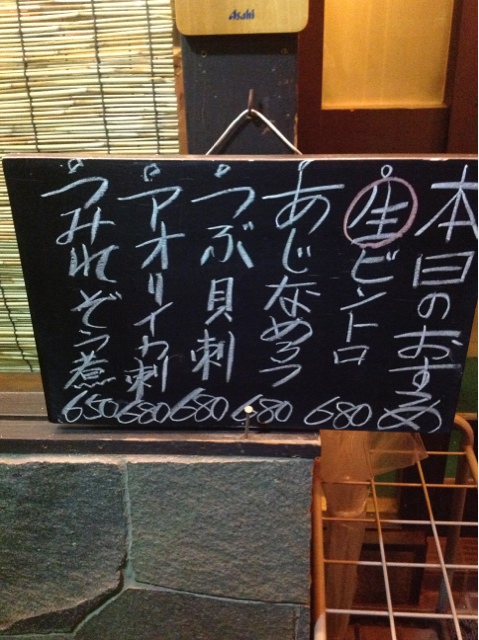 Asahi
本日のおすすめ
生ビントロ 680
あじなめろう 680
つぶ貝刺 680
アオリイカ刺 680
つみれぞう煮 650